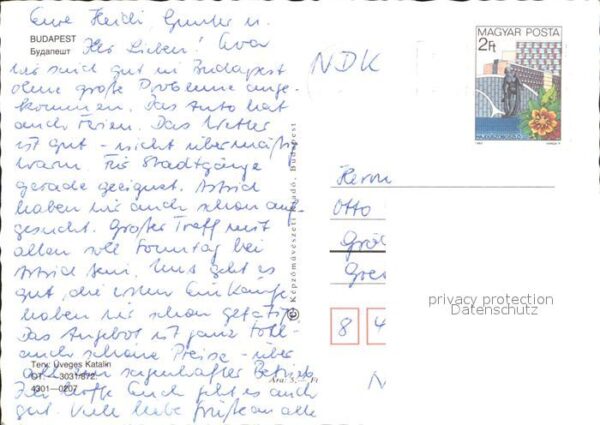 Eure Heidi Gunter u.
BUDAPEST
Будапешт
Ihr Lieben!
wir sind gut in Budapest
ohne große Probleme ange-
kommen. Das Auto hat
auch Ferien. Das Wetter
ist gut - nicht übermäßig
warm. Für Stadtgänge
gerade geeignet. Astrid
haben wir auch schon auf-
gesucht. Großer Treff mit
allen soll Sonntag bei
Astrid sein. Uns geht es
gut, die ersten Einkäufe
haben wir schon getätigt.
Das Angebot ist ganz toll -
auch schöne Preise - über
sagenhafter Betrieb.
Terv: Üveges Katalin
OT. - 3031/872.
4301-0207
Ára: 5,- Ft
Ich hoffe Euch geht es auch
gut. Viele liebe Grüße an alle
© Képzőművészeti Kiadó, Budapest
NDK
MAGYAR POSTA
2Ft
Herrn
Otto
Grö
Gre
privacy protection
Datenschutz
8 4
N